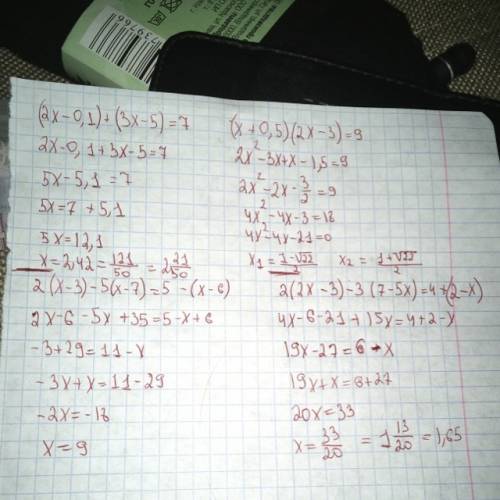 (2x-0,1)+(3x-5)=7
2x-0,1+3x-5=7
5x-5,1=7
5x=7+5,1
5x=12,1
x=2,42=121/50=2 21/50
2(x-3)-5(x-7)=5-(x-6)
2x-6-5x+35=5-x+6
-3+29=11-x
-3x+x=11-29
-2x=-18
x=9
(x+0,5)(2x-3)=9
2x²-3x+x-1,5=9
2x²-2x-3/2=9
4x²-4x-3=18
4x²-4x-21=0
x₁=1-√22/2 x₂=1+√22/2
2(2x-3)-3(7-5x)=4+(2-x)
4x-6-21+15x=4+2-x
19x-27=6-x
19x+x=6+27
20x=33
x=33/20=1 13/20=1,65